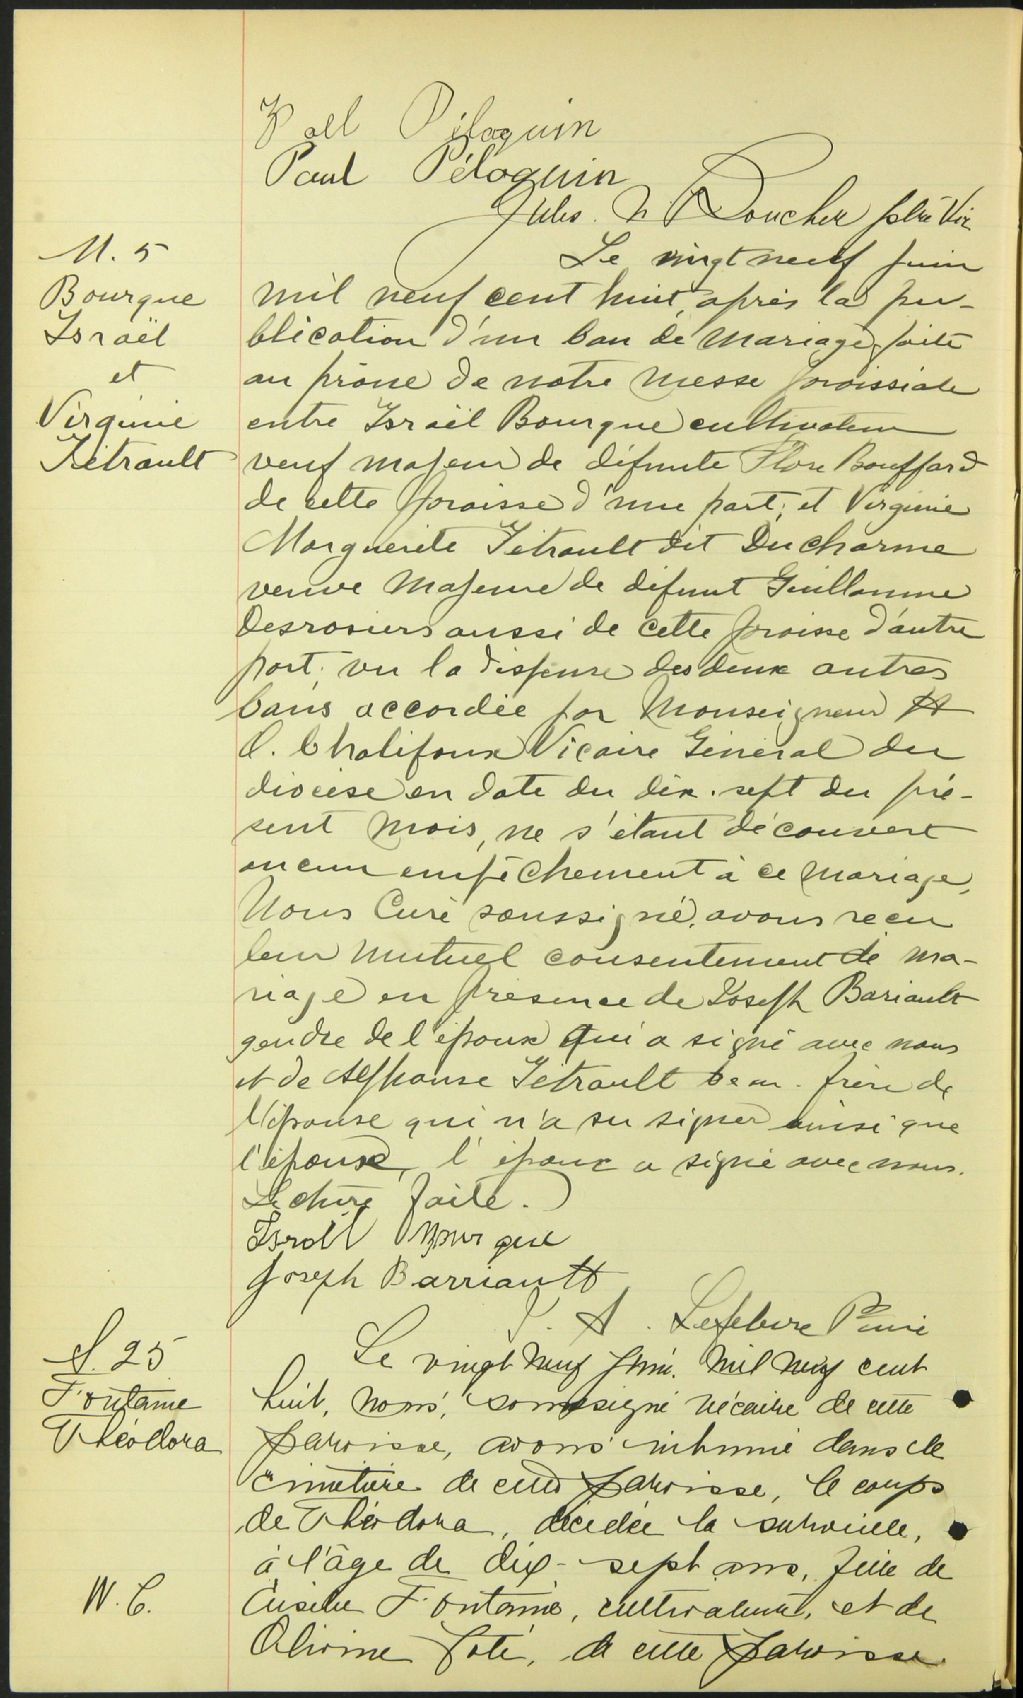 Péloquin
Paul Péloquin
Jules. N Doucher ptre Vic
Le vingt neuf juin
M. 5
Bourque
Israël
et
Virginie
Tétrault
mil neuf cent huit, après la pu-
blication d'un ban de mariage faite
au prône de notre messe paroissiale
entre Israël Bourque cultivateur
veuf majeur de défunte Flore Bouffard
de cette paroisse d'une part; et Virginie
Marguerite Tétrault dit Ducharme
veuve majeure de défunt Guillaume
Desrosiers aussi de cette paroisse d'autre
part; vu la dispense des deux autres
bans accordée par Monseigneur
O. Chalifoux Vicaire Général du
diocèse en date du dix-sept du pré-
sent mois, ne s'étant découvert
aucun empêchement à ce mariage,
Nous Curé soussigné, avons reçu
leur mutuel consentement de ma-
riage en présence de Joseph Bariault
gendre de l'époux qui a signé avec nous
et de Alphonse Tétrault beau-frère de
l'épouse qui n'a su signer ainsi que
l'épouse, l'époux a signé avec nous.
Lecture faite.
Israël Bourque
Joseph Barriault
J. A. Lefebvre Ptre
S. 25
Fontaine
Théodora
N. C.
Le vingt neuf juin, mil neuf cent
huit, nous, soussigné vicaire de cette
paroisse, avons inhumé dans le
cimetière de cette paroisse, le corps
de Théodora, décédée la surveille,
à l'âge de dix-sept ans, fille de
Fontaine, cultivateur, et de
Coté, de cette paroisse.